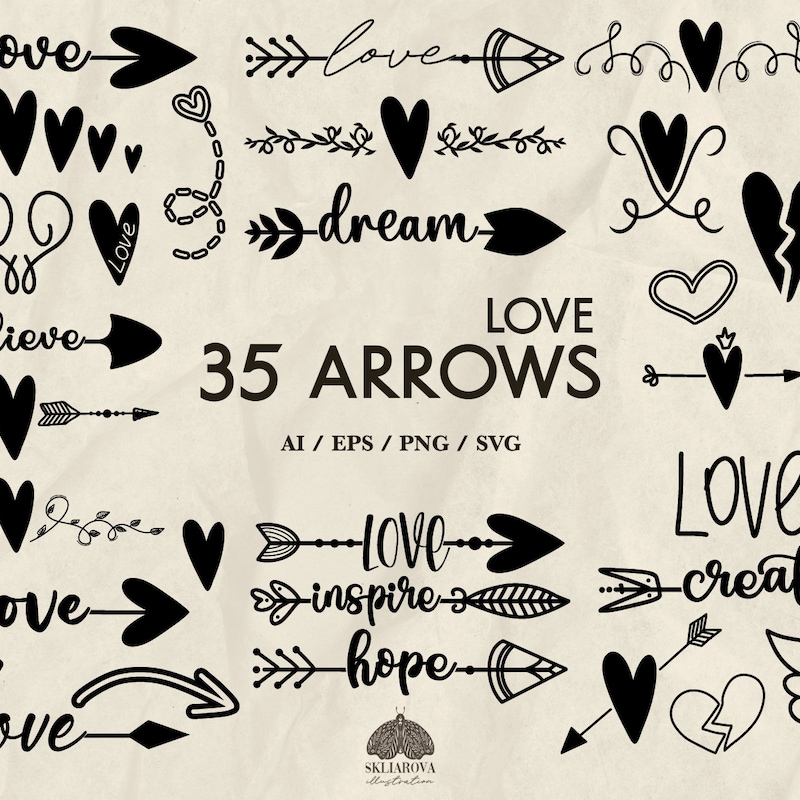 ove
love
Love
dream
LOVE
35 ARROWS
lieve
AI / EPS / PNG / SVG
LOVE
LOVE
creat
inspire
ove
hope
ove
SKLIAROVA
illustration